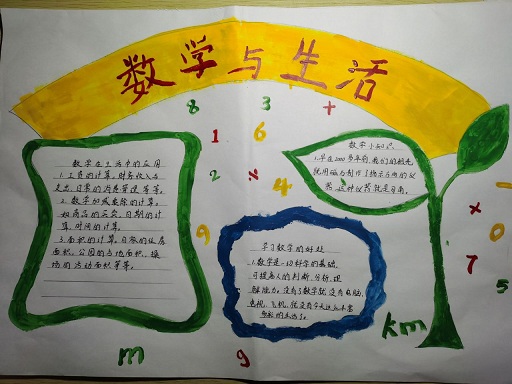 数学与生活
8 3 +
1 6
2 × 4
9
数学在生活中的应用
1.工资的计算,财务收入与
支出,日常的消费管理等等。
2.数学加减乘除的计算。
如商品的买卖,日期的计
算,时间的计算。
3.面积的计算。日常的住房
面积,公园的占地面积,操
场的活动面积等等。
数学小知识
1.早在2000多年前,我们的祖先
就用磁石制作了指示方向的仪
器,这种仪器就是司南。
学习数学的好处
1.数学是一切科学的基础,
可提高人的判断、分析、理
解能力。没有了数学就没有电脑,
电视,飞机,
×
0
7
5
km
m
9